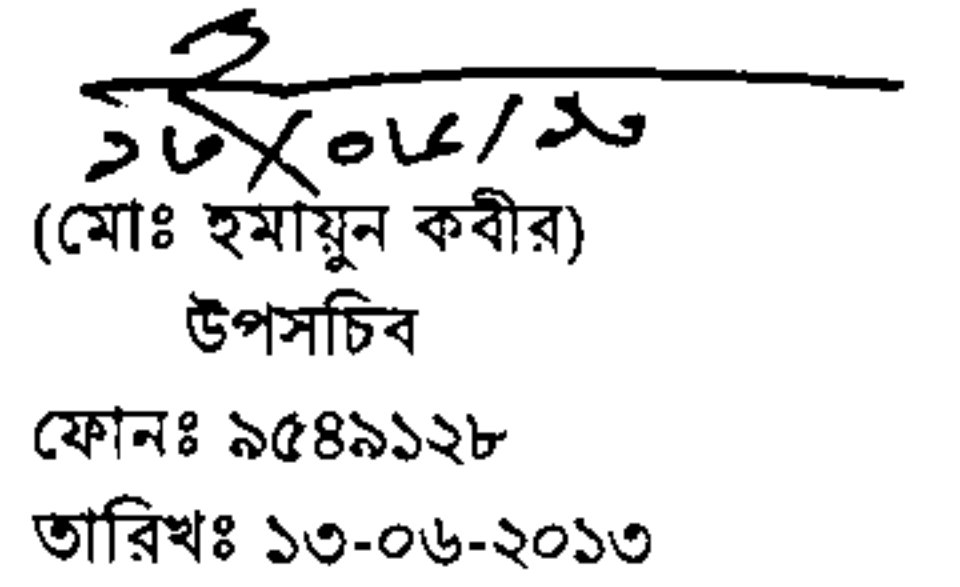 ১৩/০৬/১৩
(মোঃ হুমায়ুন কবীর)
উপসচিব
ফোনঃ ৯৫৪৯১২৮
তারিখঃ ১৩-০৬-২০১৩